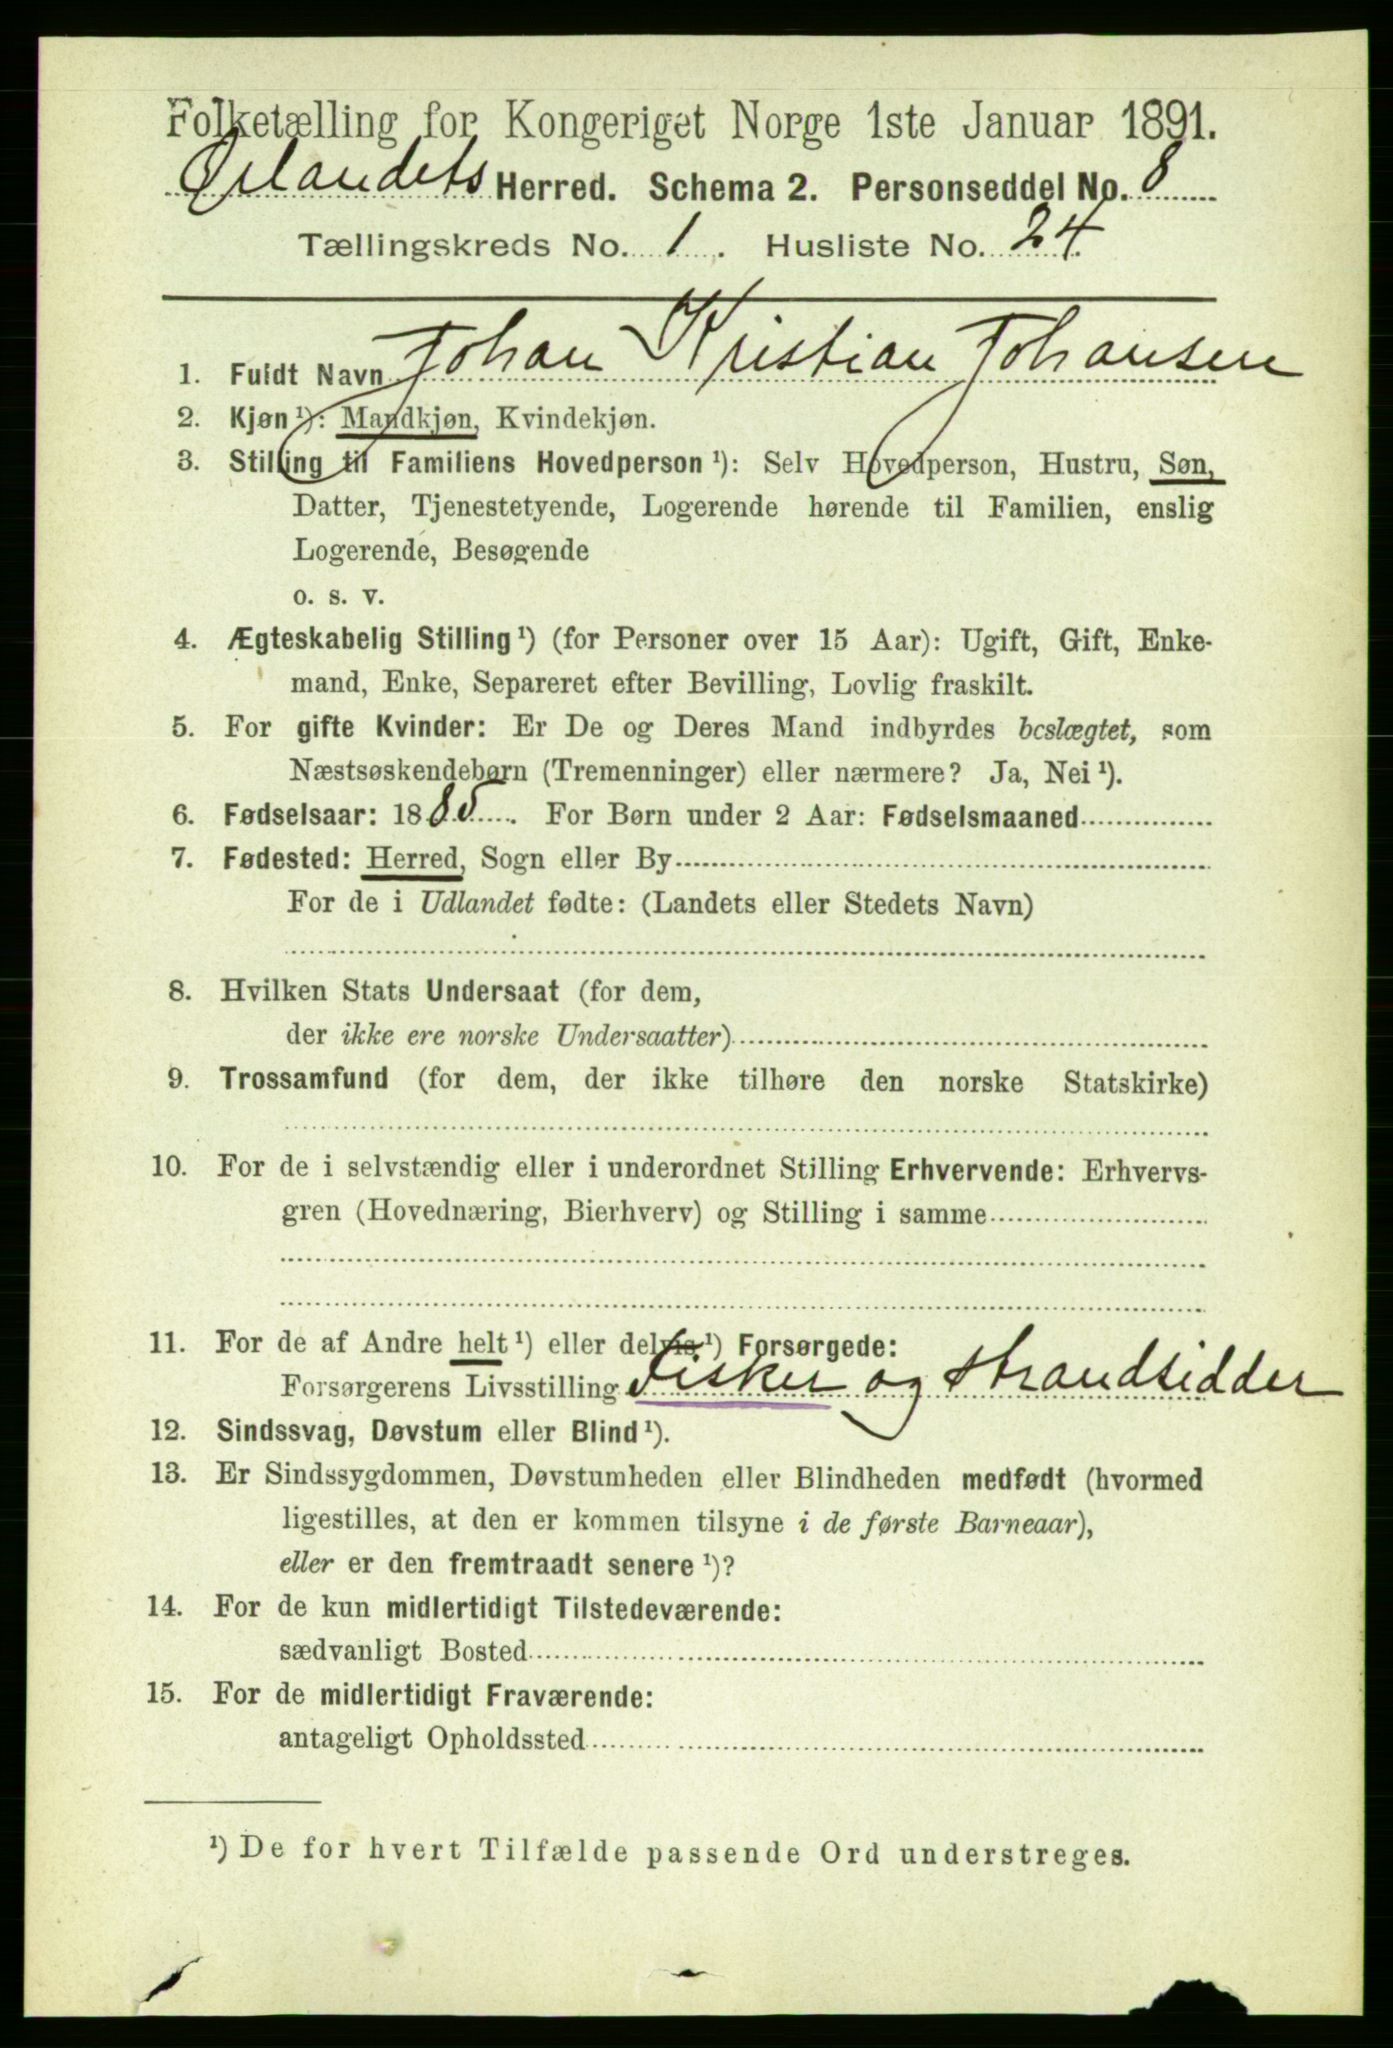 Folketælling for Kongeriget Norge 1ste Januar 1891.
Ørlandets Herred. Schema 2. Personseddel No. 8
Tællingskreds No. 1. Husliste No. 24
1. Fuldt Navn Johan Kristian Johansen
2. Kjøn¹): Mandkjøn, Kvindekjøn.
3. Stilling til Familiens Hovedperson¹): Selv Hovedperson, Hustru, Søn,
Datter, Tjenestetyende, Logerende hørende til Familien, enslig
Logerende, Besøgende
o. s. v.
4. Ægteskabelig Stilling¹) (for Personer over 15 Aar): Ugift, Gift, Enke-
mand, Enke, Separeret efter Bevilling, Lovlig fraskilt.
5. For gifte Kvinder: Er De og Deres Mand indbyrdes beslægtet, som
Næstsøskendebørn (Tremenninger) eller nærmere? Ja, Nei¹).
6. Fødselsaar: 1885. For Børn under 2 Aar: Fødselsmaaned
7. Fødested: Herred, Sogn eller By
For de i Udlandet fødte: (Landets eller Stedets Navn)
8. Hvilken Stats Undersaat (for dem,
der ikke ere norske Undersaatter)
9. Trossamfund (for dem, der ikke tilhøre den norske Statskirke)
10. For de i selvstændig eller i underordnet Stilling Erhvervende: Erhvervs-
gren (Hovednæring, Bierhverv) og Stilling i samme
11. For de af Andre helt¹) eller delvis¹) Forsørgede:
Forsørgerens Livsstilling Fisker og strandsidder
12. Sindssvag, Døvstum eller Blind¹).
13. Er Sindssygdommen, Døvstumheden eller Blindheden medfødt (hvormed
ligestilles, at den er kommen tilsyne i de første Barneaar),
eller er den fremtraadt senere¹)?
14. For de kun midlertidigt Tilstedeværende:
sædvanligt Bosted
15. For de midlertidigt Fraværende:
antageligt Opholdssted
¹) De for hvert Tilfælde passende Ord understreges.